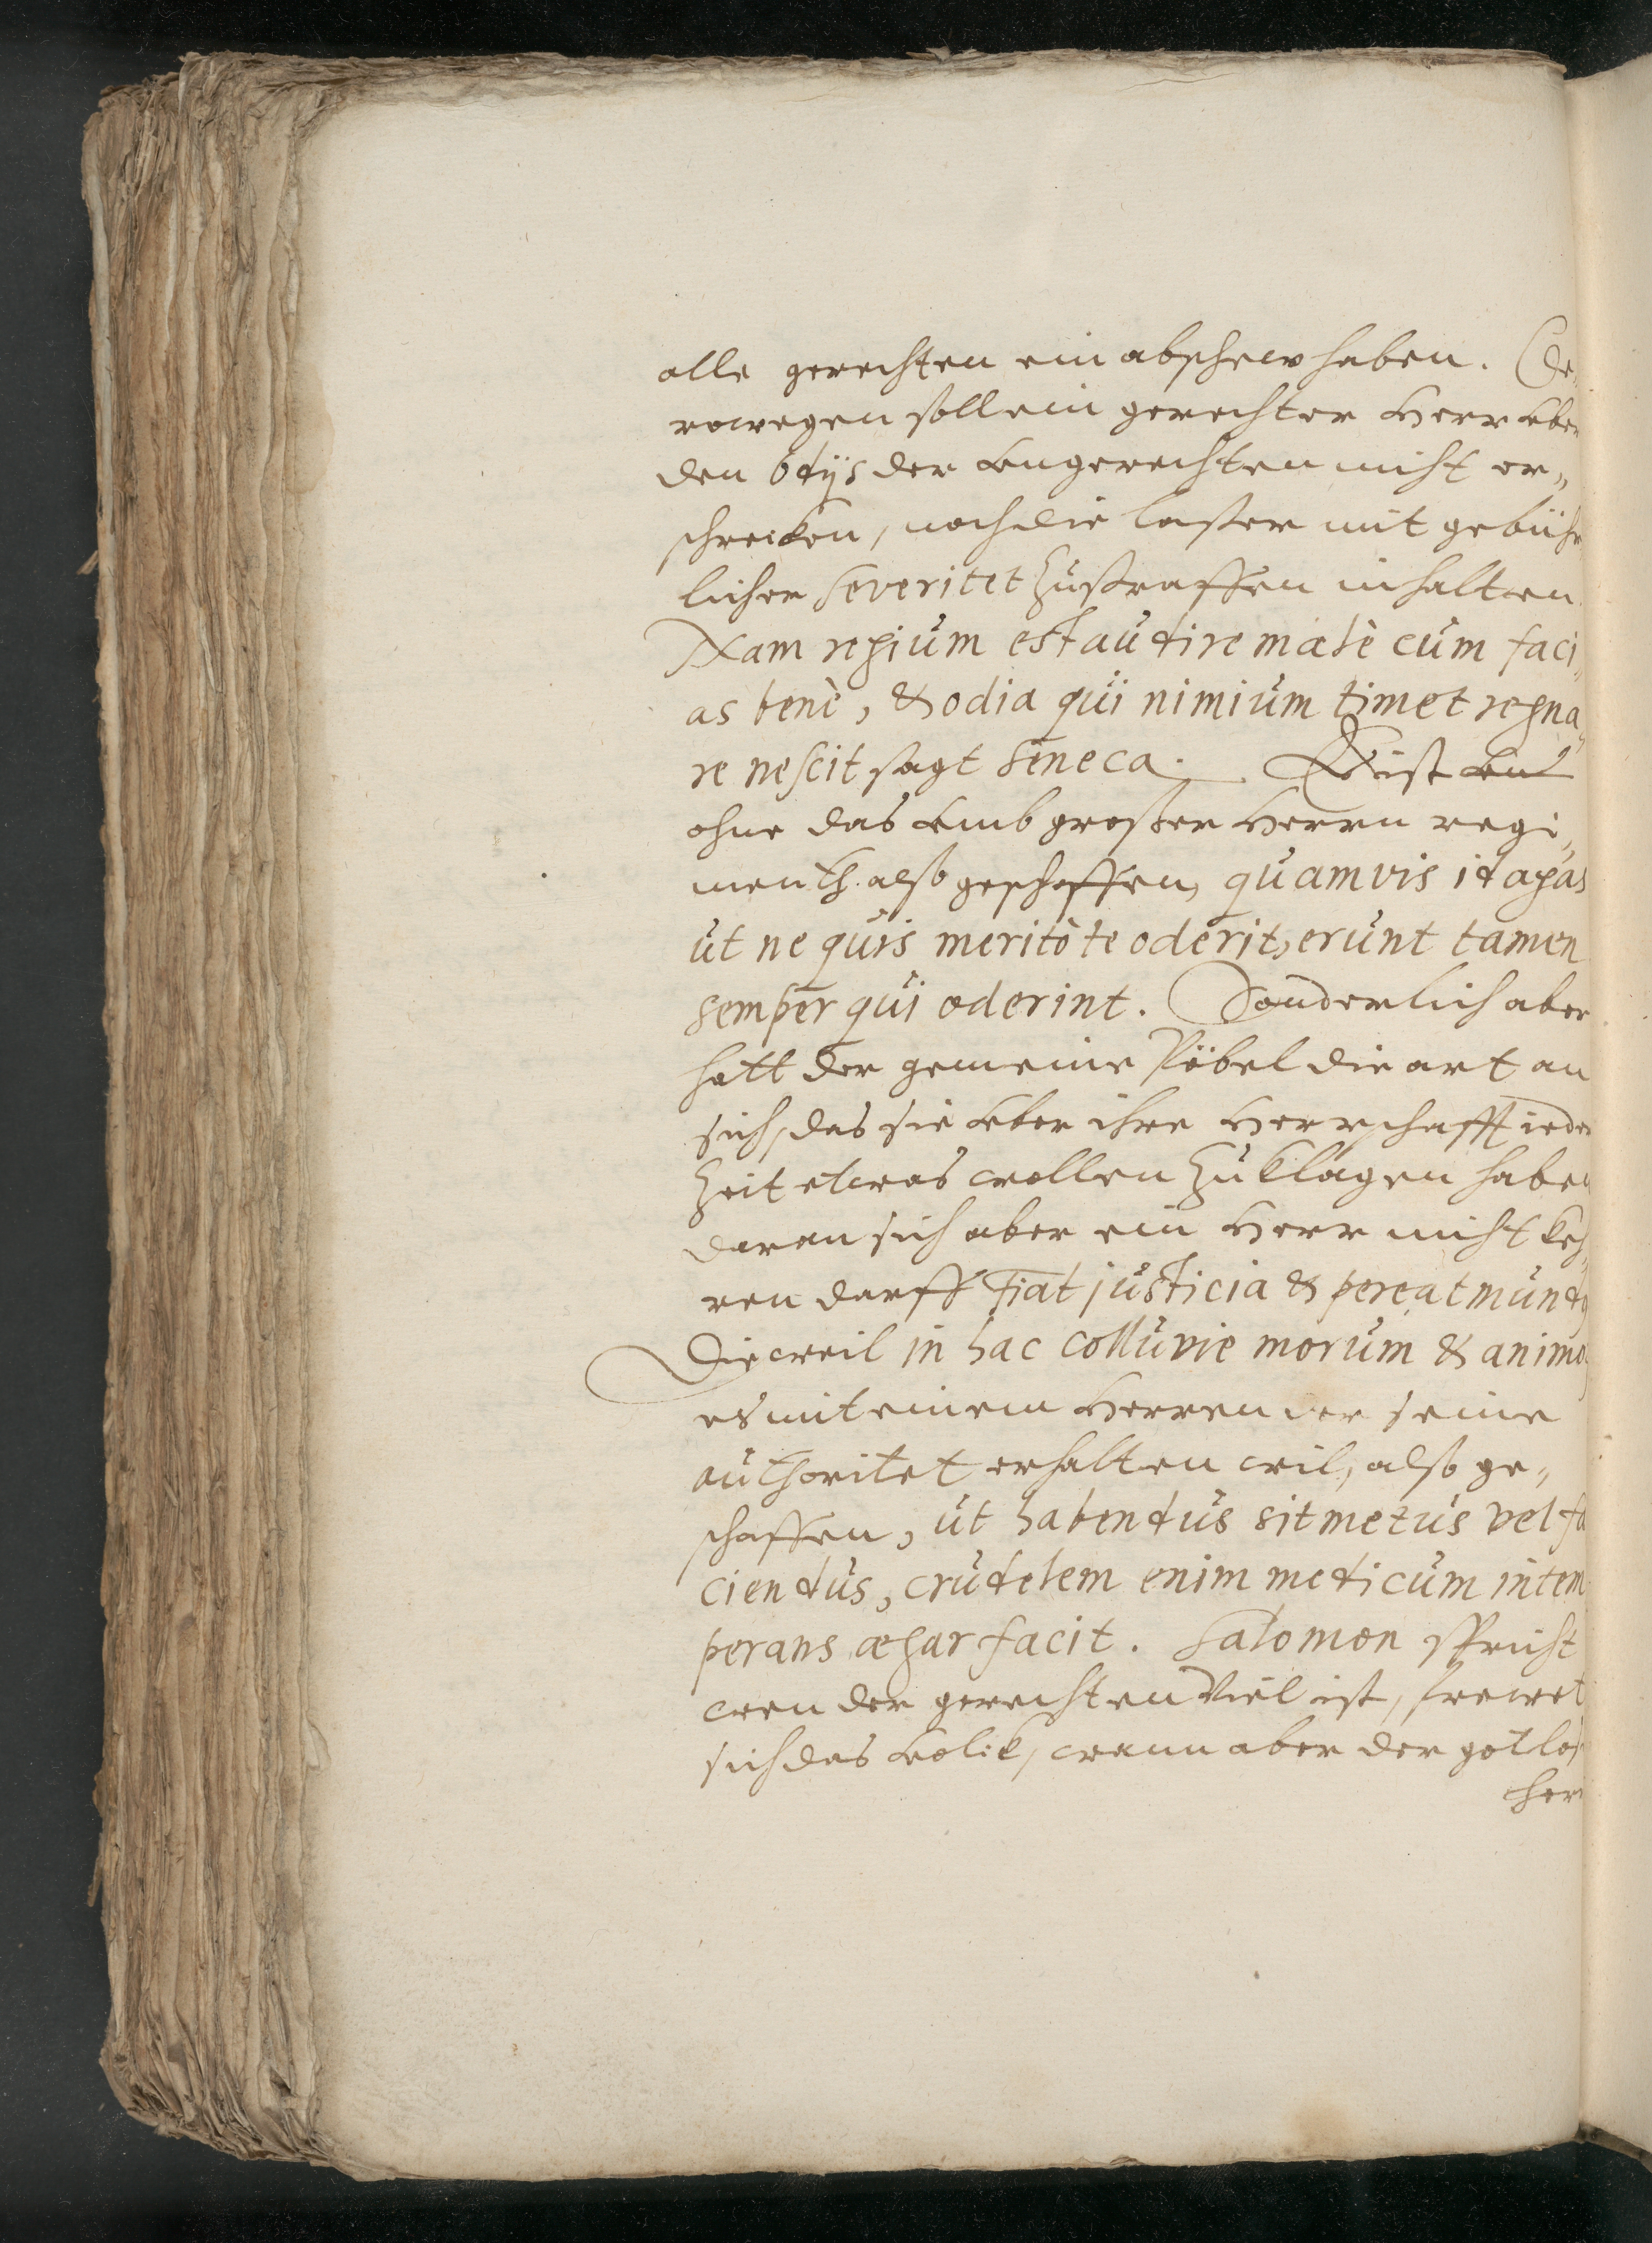 alle gerechten ein abschew haben. De„
rowegen soll ein gerechter Herr uber
den odijs der ungerechten nicht er„
schrecken, noch die laster mit gebühr
licher Severitet zustraffen inhalten.
Nam regium est audire malè cum faci„
as benè, & odia qui nimium timet regna„
re nescit sagt Seneca. Es ist
ohne das umb grosser Herrn regi„
menth also geschaffen, quamvis id agas
ut ne quis meritò te oderit, erunt tamen
semper qui oderint. Sonderlich aber
hatt der gemeine Pöbel die art an
sich, das sie uber ihre Herrschafft ieder
Zeit etwas wollen zuklagen haben
daran sich aber ein Herr nicht keh„
ren darff Fiat justicia & pereat mundus
Dieweil in hac colluvie morum & animo
es mit einem Herren der seine
authoritet erhalten wil, also ge„
schaffen, ut habendus sit metus vel fa
ciendus, crudelem enim medicum intem
perans ægar facit. Salomon spricht
wen der gerechten Viel ist, frewet
sich das Volck, wann aber der gotlos
her